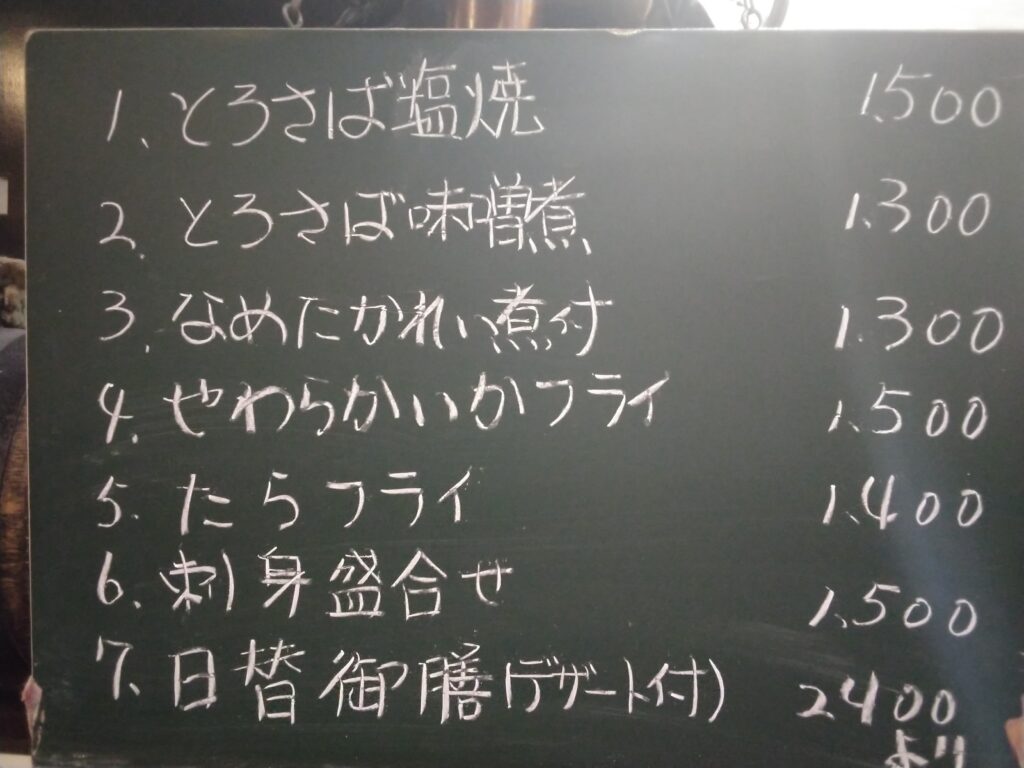 1、とろさば塩焼 1.500
2、とろさば味噌煮 1.300
3、なめたかれい煮付 1.300
4、やわらかいかフライ 1.500
5、たらフライ 1.400
6、刺身盛合せ 1.500
7、日替御膳(デザート付) 2400
より